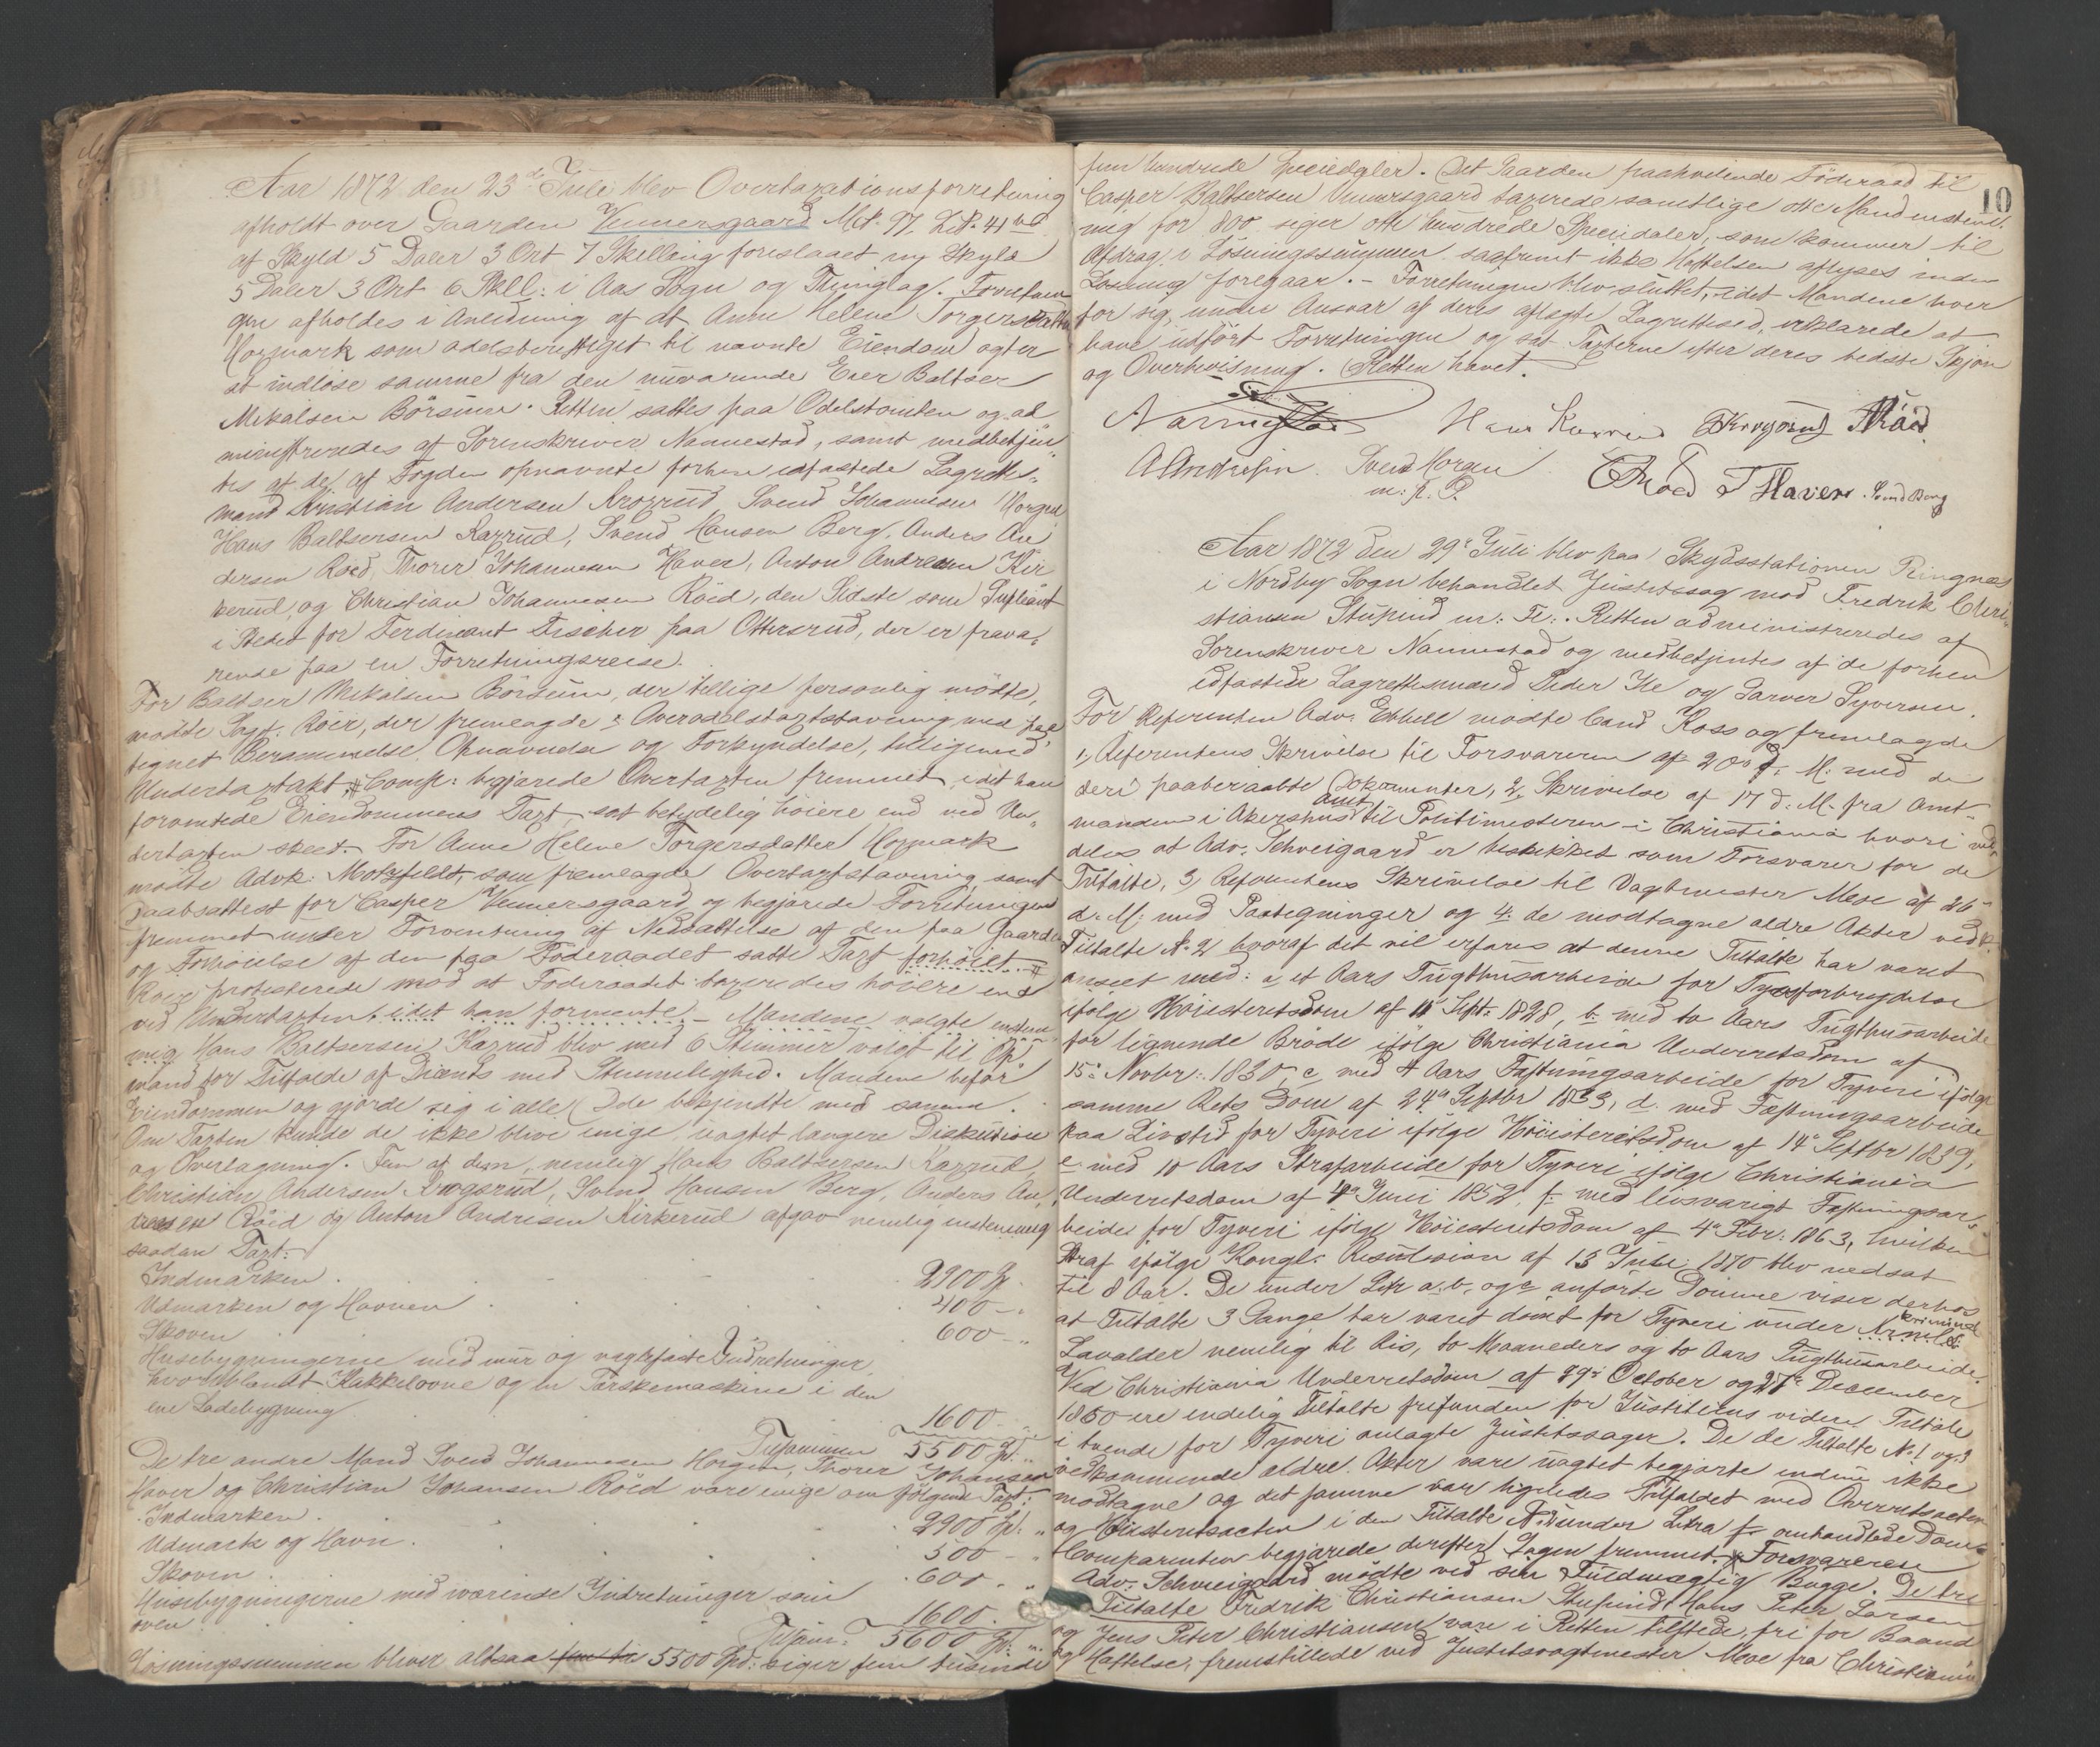 Aar 1872 den 23de Juli blev Overtaxationsforretning
afholdt over Gaarden Vennersgaard Mat. 97, L. No. 41
af Skyld 5 Daler 3 Ort 7 Skilling foreslaaet ny Skyld
5 Daler 3 Ort 6 Skll: i Aas Sogn og Thinglag. Forretnin-
gen afholdes i Anledning af at Anne Helene Torgersdatter
Hormark som odelsberettiget til nævnte Eiendom agter
at indløse samme fra den nuværende Eier Baltser
Mikalsen Börsum. Retten sattes paa Odelstomten og ad
ministreredes af Sorenskriver Nannestad, samt medbetjen-
tes af de af Fogden opnævnte forhen edfæstede Lagrettes-
mænd Kristian Andersen Krogsrud, Svend Johannesen Horgen
Hans Baltsersen Karrud, Svend Hansen Berg, Anders An
dersen Röed, Thorer Johannesen Haver, Anton Andresen Kir
kerud, og Christian Johannesen Röed, den Sidste som Supleant
i Stedet for Ferdinant Fischer paa Ottersrud, der er fravæ-
rende paa en Forretningsreise.
For Baltser Mikalsen Börsum, der tillige personlig mödte,
mödte Sagf. Roer, der fremlagde Overodelstaxtstævning med paa
tegnet Berammelse, Opnævnelse og Forkyndelse, tilligemed
Undertaxtakt. Comp: begjærede Overtaxten fremmet, idet han
formentede Eiendommens Taxt sat betydelig höiere end ved Un-
dertaxten skeet. For Anne Helene Torgersdatter Hormark
mödte Advk: Motzfeldt, som fremlagde Overtaxtstævning samt
Daabsattest for Casper Vennersgaard, og begjærede Forretningen
fremmet under Forventning af Nedsættelse af den paa Gaarden
og Forhöielse af den paa Föderaadet satte Taxt forhöiet.
Roer protesterede mod at Föderaadet taxeredes höiere end
ved Undertaxten, idet han formente. Mændene valgte enstem
mig Hans Baltsersen Karrud blev med 6 Stemmer valgt til Op
mand for Tilfælde af Dicents med Stemmelighed. Mændene befor
Eiendommen og gjorde sig i alle Dele bekjendte med samme.
Om Taxten kunde de ikke blive enige, uagtet længere Diskution
og Overlægning. Fem af dem, nemlig Hans Baltsersen Karrud,
Christian Andersen Krogsrud, Svend Hansen Berg, Anders An
dresen Röed og Anton Andresen Kirkerud afgav nemlig enstemmig
saadan Taxt:
Indmarken. 2900 Sp.
Udmarken og Havnen 400 - "
Skoven 600 - "
Husebygningerne med mur og vægfaste Indretninger,
hvoriblandt Kakkelovne og en Tærskemaskine i den
ene Ladebygning 1600 - "
Tilsammen 5500 Sp: "
De tre andre Mænd Svend Johannesen Horgen, Thorer Johansen
Haver og Christian Johansen Röed vare enige om fölgende Taxt:
Indmarken. 2900 Sp. "
Udmark og Havn. 500 - "
Skoven. 600 - "
Husebygningerne med værende Indretninger som
oven 1600.
Tilsam: 5600 Sp: "
Lösningssummen bliver altsaa 5500 Spd: siger fem tusinde
10
fem hundrede Speciedaler. Det Gaarden paahvilende Föderaad til
Casper Baltsersen Vennersgaard taxerede samtlige otte Mænd enstem-
mig for 800 siger otte hundrede Speciedaler, som kommer til
Afdrag i Lösningssummen saafremt ikke Hæftelsen aflyses inden
Lösning foregaar. – Forretningen blev sluttet, idet Mændene hver
for sig, under Ansvar af deres aflagte Lagrettesed, erklærede at
have udfört Forretningen og sat Taxterne efter deres bedste Skjön
og Overbevisning. Retten hævet.
Nannestad Hans Karrud Krogsrud Röed
A Andresen. Svend Horgen Röed T Haver. Svend Berg
m. p. P.
Aar 1872 den 29de Juli blev paa Skydsstationen Ringnæs
i Nordby Sogn behandlet Justitssag mod Fredrik Chri-
stiansen Stupind m: Fl:. Retten administreredes af
Sorenskriver Nannestad og medbetjentes af de forhen
edfæstede Lagrettesmænd Peder Ile og Garver Syversen.
For Referenten Adv: Ebbell mödte Cand Koss og fremlagde
1, Referentens Skrivelse til Forsvareren af 20de d. M: med de
deri paaberaabte Dokumenter, 2, Skrivelse af 17 d. M. fra Amt-
manden i Akershus Amt til Politimesteren i Christiania hvori med
deles at Adv. Schweigaard er beskikket som Forsvarer for de
Tiltalte, 3, Referentens Skrivelse til Vagtmester Moe af 26
d. M: med Paategninger og 4, de modtagne ældre Akter vedk:
Tiltalte No 2 hvoraf det vil erfares at denne Tiltalte har været
anseet med: a, et Aars Tugthusarbeide for Tyvsforbrydelse
ifölge Höiesteretsdom af 11 Sept: 1828, b. med to Aars Tugthusarbeide
for lignende Bröde ifölge Christiania Underretsdom af
15de Novbr: 1830, c, med 4 Aars Fæstningsarbeide for Tyveri ifölge
samme Rets Dom af 24de Septbr 1833, d. med Fæstningsarbeide
paa Livstid for Tyveri ifölge Höiesteretsdom af 14de Septbr 1839,
e med 10 Aars Strafarbeide for Tyveri ifölge Christiania
Underretsdom af 4de Juni 1852, f. med livsvarigt Fæstningsar-
beide for Tyveri ifölge Höiesteretsdom af 4de Febr: 1863, hvilken
Straf ifölge Kongl: Resolusion af 13 Juni 1870 blev nedsat
til 8 Aar. De under Litr a. b, og c anförte Domme viser derhos
at Tiltalte 3 Gange har været dömt for Tyveri under kriminel
Lavalder nemlig til Ris, to Maaneders og to Aars Tugthusarbeide.
Ved Christiania Underretsdom af 29de October og 27de December
1860 ere endelig Tiltalte frifunden for Justitiens videre Tiltale
i tvende for Tyveri anlagte Justitssager. De de Tiltalte No 1 og 3
vedkommende ældre Akter vare uagtet begjærte endnu ikke
modtagne og det samme var ligeledes Tilfældet med Overretsacten
og Höiesteretsacten i den Tiltalte No 2 under Litra f. omhandlede Dom.
Comparenten begjærede derefter Sagen fremmet. Forsvareren
Adv: Schweigaard mödte ved sin Fuldmægtig Bugge. De tre
Tiltalte Fredrik Christiansen Stupind, Hans Peter Larsen
og Jens Peter Christiansen vare i Retten tilstede, fri for Baand
og Hæftelse, fremstillede ved Justitsvagtmester Moe fra Christiania